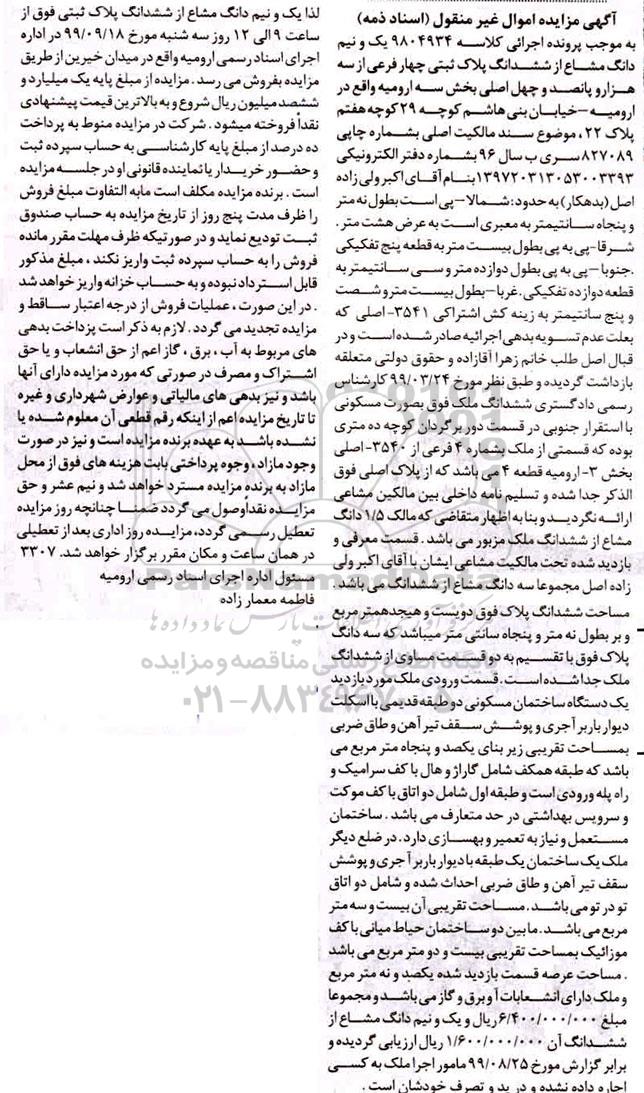 آگهی مزایده اموال غیر منقول (اسناد ذمه)
به موجب پرونده اجرائی کلاسه ۹۸۰۴۹۳۴ یک و نیم
دانگ مشاع از ششدانگ پلاک ثبتی چهار فرعی از سه
هزارو پانصد و چهل اصلی بخش سه ارومیه واقع در
ارومیه –خیابان بنی هاشم کوچه ۲۹ کوچه هفتم
پلاک ۲۲ ، موضوع سند مالکیت اصلی بشماره چاپی
۸۲۷۰۸۹ سری ب سال ۹۶ بشماره دفتر الکترونیکی
۱۳۹۷۲۰۳۱۳۰۵۳۰۰۳۳۹۳ بنام آقای اکبر ولی زاده
اصل (بدهکار) به حدود: شمالا –پی است بطول نه متر
و پنجاه سانتیمتر به معبری است به عرض هشت متر .
شرقا-پی به پی بطول بیست متر به قطعه پنج تفکیکی
.جنوبا –پی به پی بطول دوازده متر و سی سانتیمتر به
قطعه دوازده تفکیکی .غربا –بطول بیست مترو شصت
و پنج سانتیمتر به زینه کش اشتراکی ۳۵۴۱- اصلی که
بعلت عدم تسویه بدهی اجرائیه صادر شده است و در
قبال اصل طلب خانم زهرا آقازاده و حقوق دولتی متعلقه
بازداشت گردیده و طبق نظر مورخ ۹۹/۰۳/۲۴ کارشناس
رسمی دادگستری ششدانگ ملک فوق بصورت مسکونی
با استقرار جنوبی در قسمت دور برگردان کوچه ده متری
بوده که قسمتی از ملک بشماره ۴ فرعی از ۳۵۴۰-اصلی
بخش ۳-ارومیه قطعه ۴ می باشد که از پلاک اصلی فوق
الذکر جدا شده و تسلیم نامه داخلی بین مالکین مشاعی
ارائه نگردید و بنا به اظهار متقاضی که مالک ۱/۵ دانگ
مشاع از ششدانگ ملک مزبور می باشد . قسمت معرفی و
بازدید شده تحت مالکیت مشاعی ایشان با آقای اکبر ولی
زاده اصل مجموعا سه دانگ مشاع از ششدانگ می باشد .
مساحت ششدانگ پلاک فوق دویست و هیجدهمتر مربع
و بر بطول نه متر و پنجاه سانتی متر میباشد که سه دانگ
پلاک فوق با تقسیم به دو قسمت مساوی از ششدانگ
ملک جدا شده است . قسمت ورودی ملک مورد بازدید
یک دستگاه ساختمان مسکونی دو طبقه قدیمی با اسکلت
دیوار باربر آجری و پوشش سقف تیر آهن و طاق ضربی
بمساحت تقریبی زیر بنای یکصد و پنجاه متر مربع می
باشد که طبقه همکف شامل گاراژ و هال با کف سرامیک و
راه پله ورودی است و طبقه اول شامل دو اتاق با کف موکت
و سرویس بهداشتی در حد متعارف می باشد . ساختمان
مستعمل و نیاز به تعمیر و بهسازی دارد . در ضلع دیگر
ملک یک ساختمان یک طبقه با دیوار باربر آجری و پوشش
سقف تیر آهن و طاق ضربی احداث شده و شامل دو اتاق
تو در تو می باشد . مساحت تقریبی آن بیست و سه متر
مربع می باشد . مابین دو ساختمان حیاط میانی با کف
موزائیک بمساحت تقریبی بیست و دو متر مربع می باشد
. مساحت عرصه قسمت بازدید شده یکصد و نه متر مربع
و ملک دارای انشعابات آو برق و گاز می باشد و مجموعا
مبلغ ۶/۴۰۰/۰۰۰/۰۰۰ ریال و یک و نیم دانگ مشاع از
ششدانگ آن ۱/۶۰۰/۰۰۰/۰۰۰ ریال ارزیابی گردیده و
برابر گزارش مورخ ۹۹/۰۸/۲۵ مامور اجرا ملک به کسی
اجاره داده نشده و در ید و تصرف خودشان است .
لذا یک و نیم دانگ مشاع از ششدانگ پلاک ثبتی فوق از
ساعت ۹ الی ۱۲ روز سه شنبه مورخ ۹۹/۰۹/۱۸ در اداره
اجرای اسناد رسمی ارومیه واقع در میدان خیرین از طریق
مزایده بفروش می رسد . مزایده از مبلغ پایه یک میلیارد و
ششصد میلیون ریال شروع و به بالاترین قیمت پیشنهادی
نقداً فروخته میشود . شرکت در مزایده منوط به پرداخت
ده درصد از مبلغ پایه کارشناسی به حساب سپرده ثبت
و حضور خریدار یا نماینده قانونی او در جلسه مزایده
است . برنده مزایده مکلف است مابه التفاوت مبلغ فروش
را ظرف مدت پنج روز از تاریخ مزایده به حساب صندوق
ثبت تودیع نماید و در صورتیکه ظرف مهلت مقرر مانده
فروش را به حساب سپرده ثبت واریز نکند ، مبلغ مذکور
قابل استرداد نبوده و به حساب خزانه واریز خواهد شد
. در این صورت ، عملیات فروش از درجه اعتبار ساقط و
مزایده تجدید می گردد . لازم به ذکر است پرداخت بدهی
های مربوط به آب ، برق ، گاز اعم از حق انشعاب و یا حق
اشتراک و مصرف در صورتی که مورد مزایده دارای آنها
باشد و نیز بدهی های مالیاتی و عوارض شهرداری و غیره
تا تاریخ مزایده اعم از اینکه رقم قطعی آن معلوم شده یا
نشده باشد به عهده برنده مزایده است و نیز در صورت
وجود مازاد ، وجوه پرداختی بابت هزینه های فوق از محل
مازاد به برنده مزایده مسترد خواهد شد و نیم عشر و حق
مزایده نقداً وصول می گردد ضمنا چنانچه روز مزایده
تعطیل رسمی گردد، مزایده روز اداری بعد از تعطیلی
در همان ساعت و مکان مقرر برگزار خواهد شد. ۳۳۰۷
مسئول اداره اجرای اسناد رسمی ارومیه
فاطمه معمار زاده
ParsNamadData
پایگاه اطلاع رسانی مناقصه و مزایده
۰۲۱-۸۸۳۴۹۶۷۰-۵